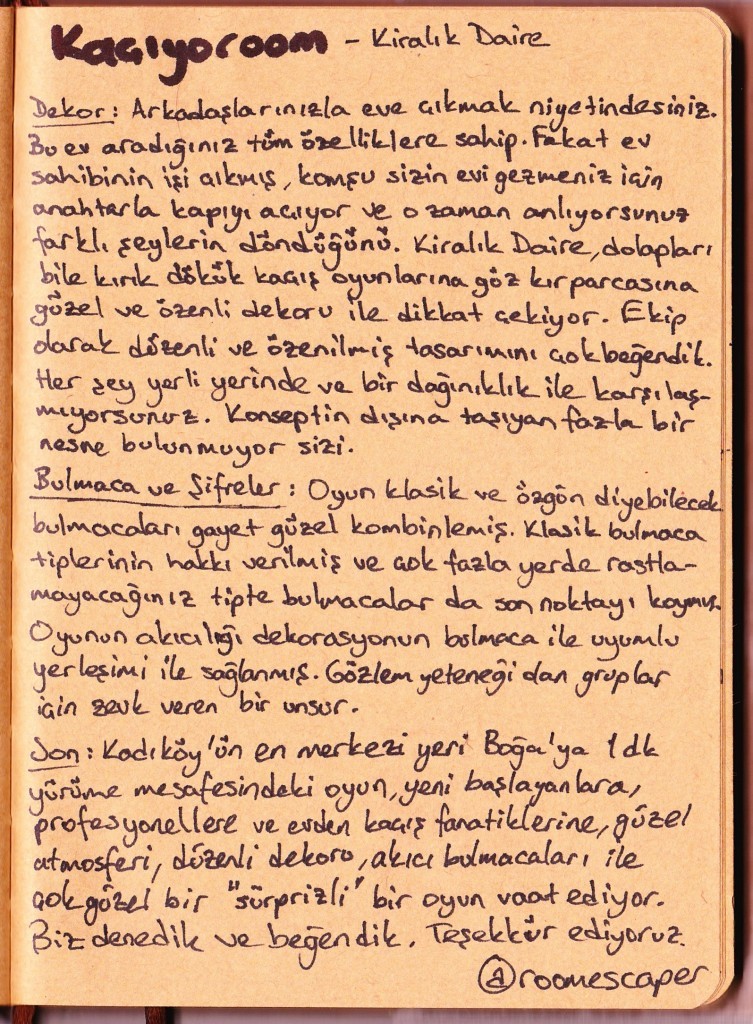 Kaçıyoroom - Kiralık Daire
Dekor: Arkadaşlarınızla eve çıkmak niyetindesiniz.
Bu ev aradığınız tüm özelliklere sahip. Fakat ev
sahibinin işi çıkmış, komşu sizin evi gezmeniz için
anahtarla kapıyı açıyor ve o zaman anlıyorsunuz
farklı şeylerin döndüğünü. Kiralık Daire, dolapları
bile kırık dökük kaçış oyunlarına göz kırparcasına
güzel ve özenli dekoru ile dikkat çekiyor. Ekip
olarak düzenli ve özenilmiş tasarımını çok beğendik.
Her şey yerli yerinde ve bir dağınıklık ile karşılaş-
mıyorsunuz. Konseptin dışına taşıyan fazla bir
nesne bulunmuyor sizi.
Bulmaca ve Şifreler: Oyun klasik ve özgün diyebilecek
bulmacaları gayet güzel kombinlemiş. Klasik bulmaca
tiplerinin hakkı verilmiş ve çok fazla yerde rastla-
mayacağınız tipte bulmacalar da son noktayı koymuş.
Oyunun akıcılığı dekorasyonun bulmaca ile uyumlu
yerleşimi ile sağlanmış. Gözlem yeteneği olan gruplar
için zevk veren bir unsur.
Son: Kadıköy'ün en merkezi yeri Boğa'ya 1 dk
yürüme mesafesindeki oyun, yeni başlayanlara,
profesyonellere ve evden kaçış fanatiklerine, güzel
atmosferi, düzenli dekoru, akıcı bulmacaları ile
çok güzel bir "sürprizli" bir oyun vaat ediyor.
Biz denedik ve beğendik. Teşekkür ediyoruz.
@roomescaper